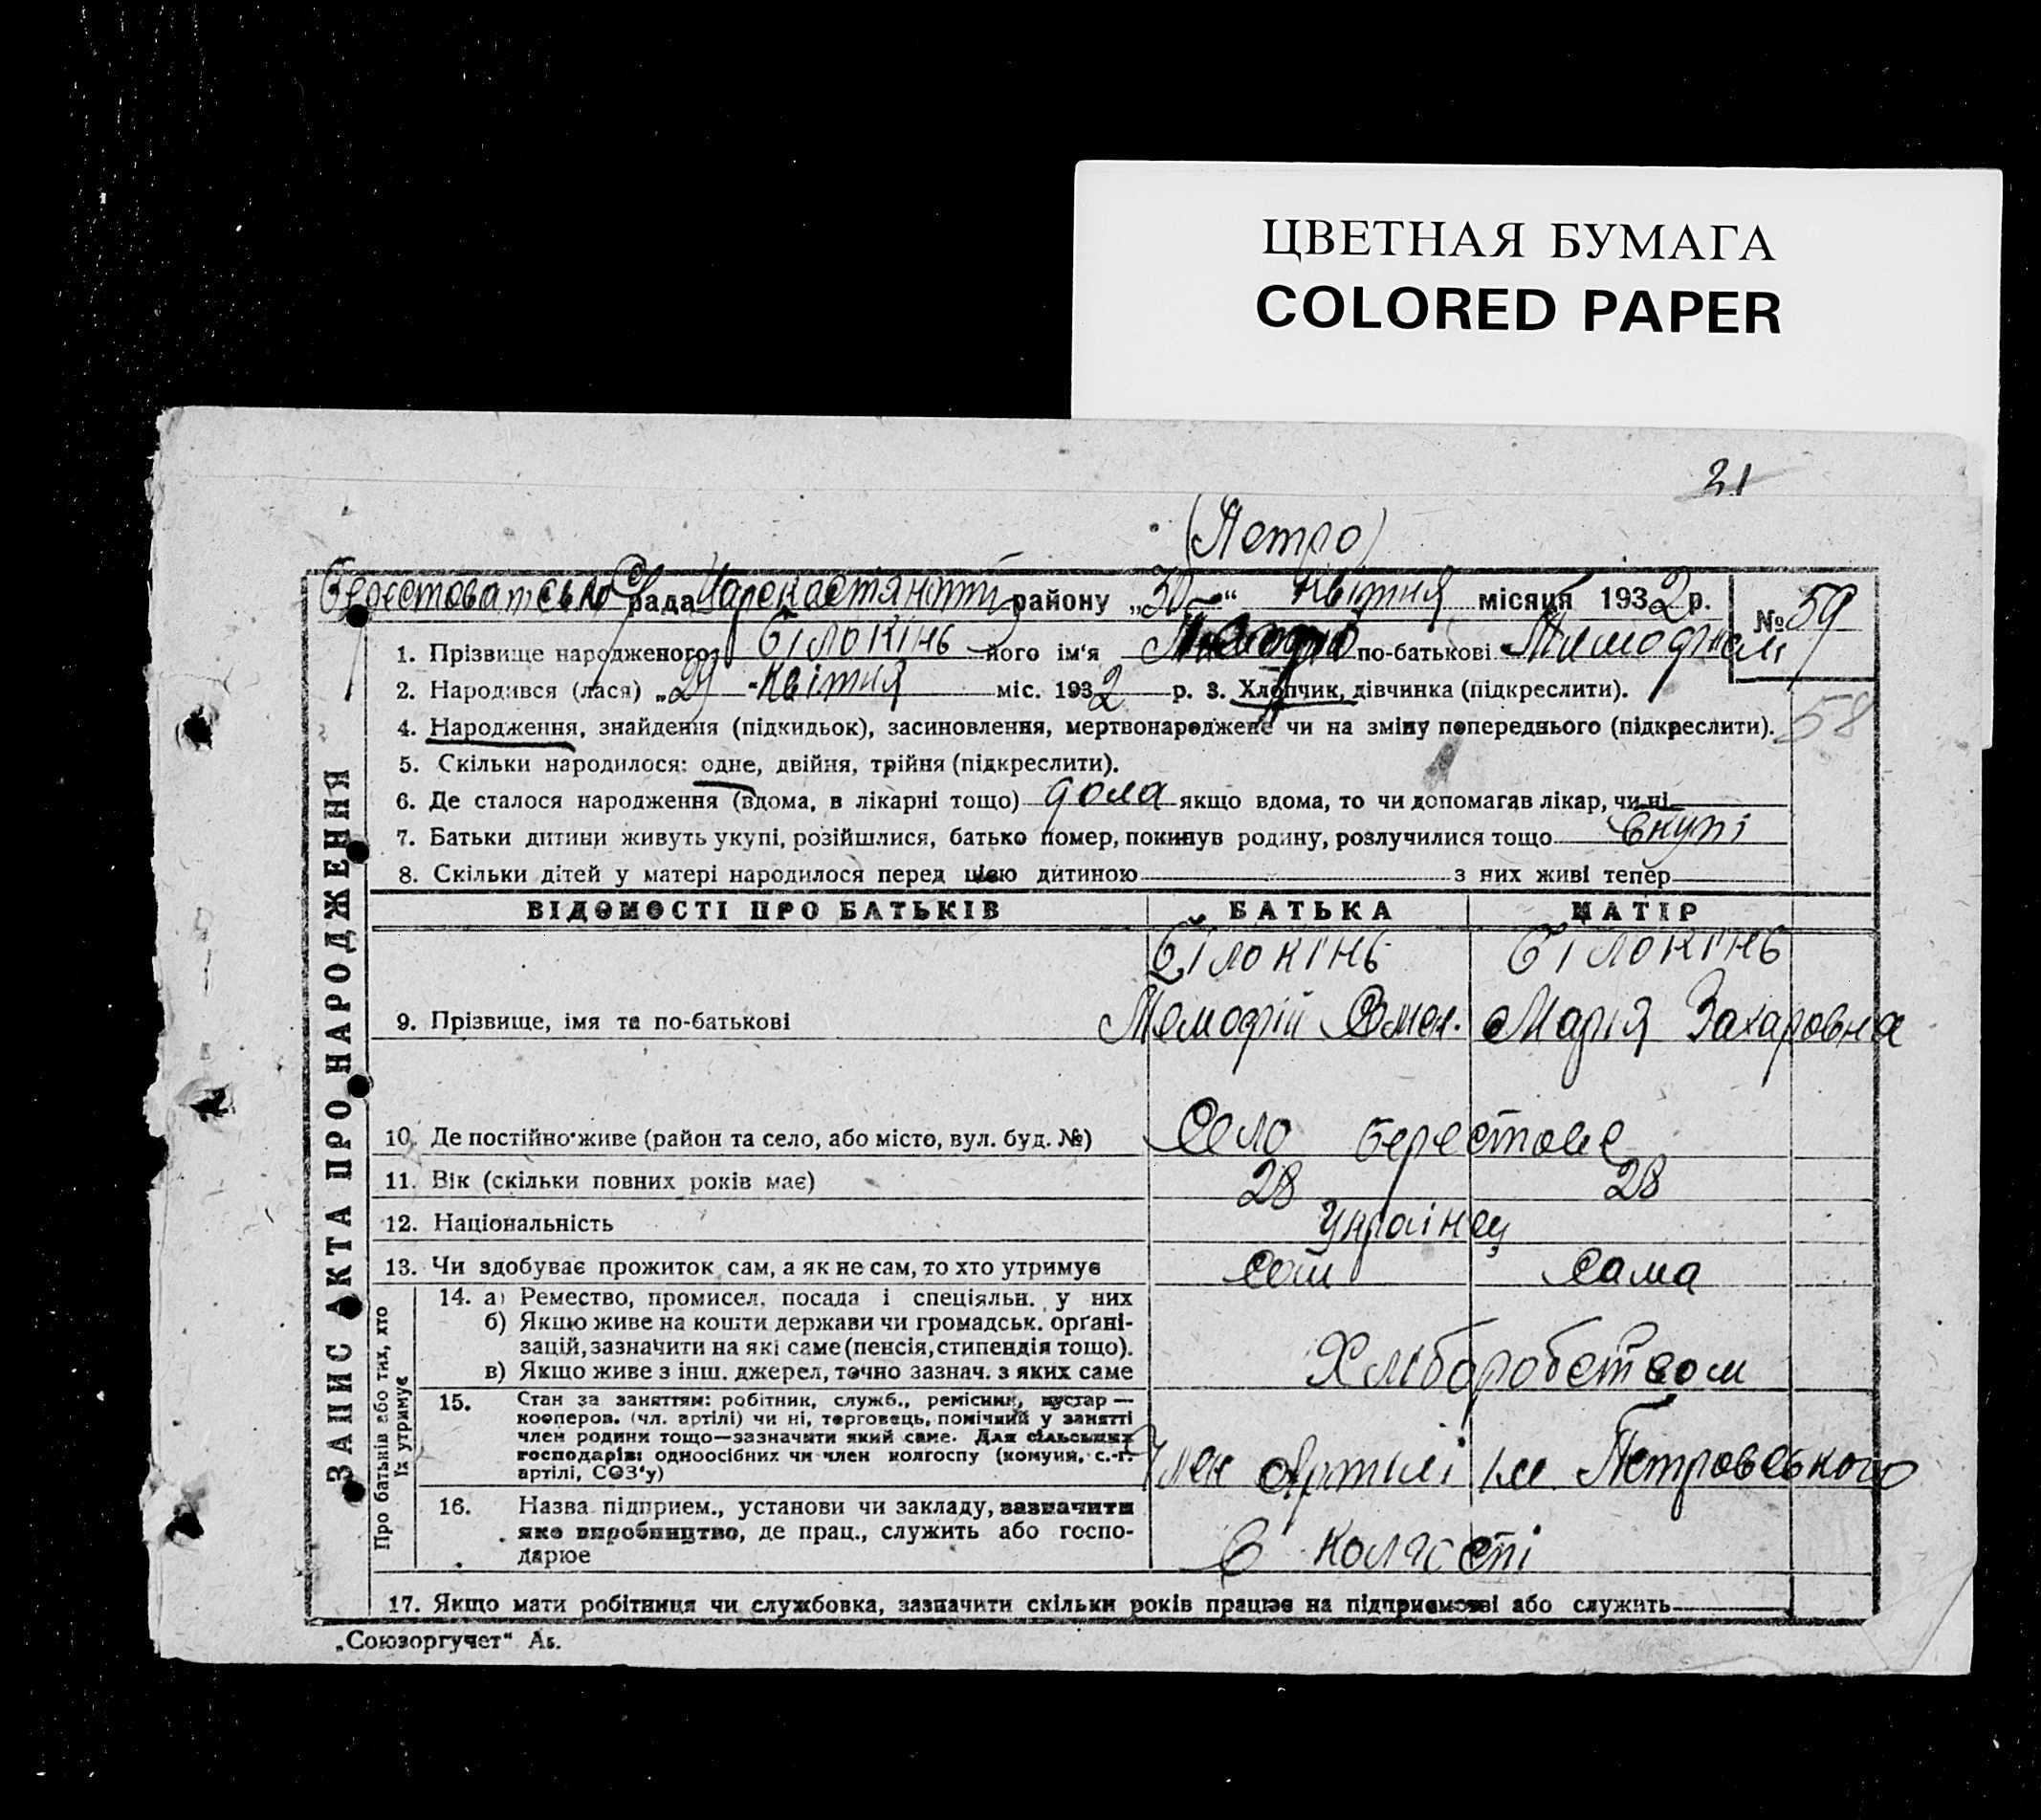 ЦВЕТНАЯ БУМАГА
COLORED PAPER
31
(Петро)
Берестоватсько рада району „30“ квітня місяця 1932 р. № 59
1. Прізвище народженого Білокінь його ім'я по-батькові
2. Народився (лася) „29“ квітня міс. 1932 р. 3. Хлопчик, дівчинка (підкреслити).
58
4. Народження, знайдення (підкидьок), засиновлення, мертвонароджене чи на зміну попереднього (підкреслити).
5. Скільки народилося: одне, двійня, трійня (підкреслити).
6. Де сталося народження (вдома, в лікарні тощо) дома якщо вдома, то чи допомагав лікар, чи ні
7. Батьки дитини живуть укупі, розійшлися, батько помер, покинув родину, розлучилися тощо вкупі
8. Скільки дітей у матері народилося перед цією дитиною з них живі тепер
ВІДОМОСТІ ПРО БАТЬКІВ БАТЬКА МАТІР
Білокінь Білокінь
9. Прізвище, імя та по-батькові Марія Захаровна
10. Де постійно живе (район та село, або місто, вул. буд. №) Село Берестове
11. Вік (скільки повних років має) 28 28
12. Національність Українец
13. Чи здобуває прожиток сам, а як не сам, то хто утримує сам сама
14. а) Ремество, промисел, посада і спеціяльн. у них
б) Якщо живе на кошти держави чи громадськ. орґані-
зацій, зазначити на які саме (пенсія, стипендія тощо).
в) Якщо живе з інш. джерел, точно зазнач. з яких саме
Хліборобством
15. Стан за заняттям: робітник, служб., ремісник, кустар —
кооперов. (чл. артілі) чи ні, торговець, помічний у занятті
член родини тощо—зазначити який саме. Для сільських
господарів: одноосібних чи член колгоспу (комуни, с.-г.
артілі, СОЗ'у)
Член Артилі ім. Петровського
16. Назва підприєм., установи чи закладу, зазначити
яке виробництво, де прац., служить або госпо-
дарює
В
17. Якщо мати робітниця чи службовка, зазначити скільки років працює на підприємстві або служить
ЗАПИС АКТА ПРО НАРОДЖЕННЯ
Про батьків або тих, хто
їх утримує
„Союзоргучет“